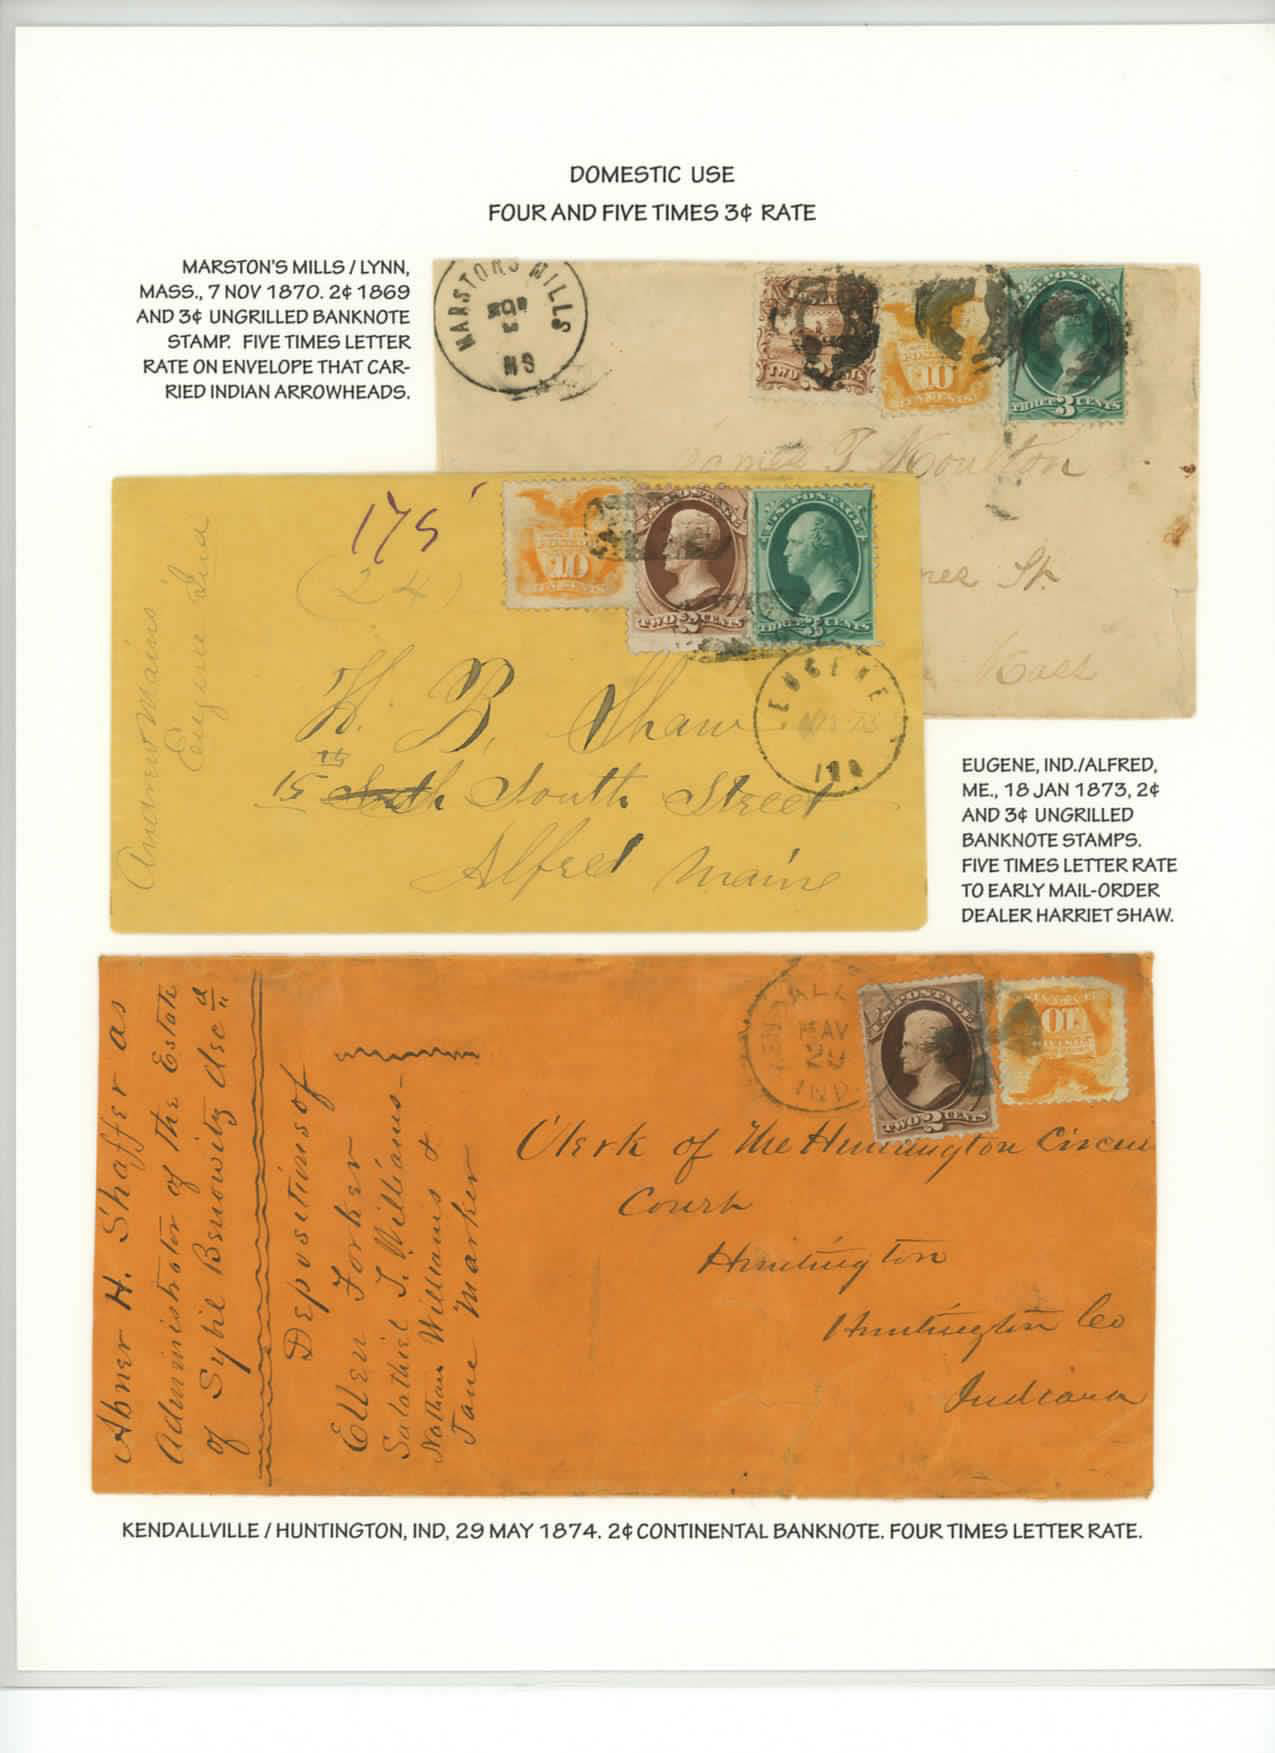 DOMESTIC USE
FOUR AND FIVE TIMES 3¢ RATE
MARSTON'S MILLS / LYNN,
MASS., 7 NOV 1870. 2¢ 1869
AND 3¢ UNGRILLED BANKNOTE
STAMP. FIVE TIMES LETTER
RATE ON ENVELOPE THAT CAR-
RIED INDIAN ARROWHEADS.
MARSTONS MILLS
NOV
MS
TWO 2 CENTS
10
TEN CENTS
THREE 3 CENTS
James T. Moulton
St.
Mass
175
(24)
Andrew Mains
Eugene Ind
10
TEN CENTS
U.S. POSTAGE
TWO 2 CENTS
U.S. POSTAGE
THREE 3 CENTS
EUGENE
IND
H. B. Shaw
15th South Street
Alfred Maine
EUGENE, IND./ALFRED,
ME., 18 JAN 1873, 2¢
AND 3¢ UNGRILLED
BANKNOTE STAMPS.
FIVE TIMES LETTER RATE
TO EARLY MAIL-ORDER
DEALER HARRIET SHAW.
Abner H. Shaffer as
Administrator of the Estate
of Sybil
Depositions of
Ellen Forker
Salathiel T. Williams
Nathan Williams &
Jane Marker
MAY
IND
U.S. POSTAGE
TWO 2 CENTS
10
Clerk of the Huntington Circuit
Court
Huntington
Huntington Co
Indiana
KENDALLVILLE / HUNTINGTON, IND, 29 MAY 1874. 2¢ CONTINENTAL BANKNOTE. FOUR TIMES LETTER RATE.